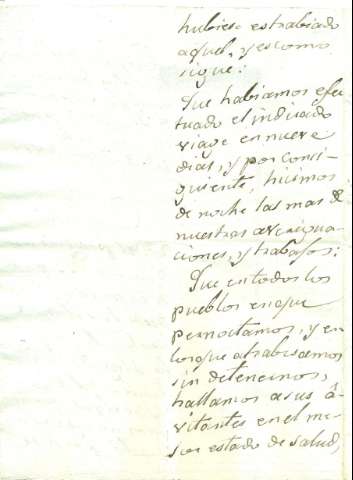 hubiese estrabiado
aquel, y es como
sigue:
Que habiamos efec
tuado el indicado
viage en nueve
dias, y por consi-
guiente, hicimos
de noche las mas de
nuestras averigua-
ciones, y trabajos:
Que en todos los
pueblos en que
pernoctamos, y en
los que atrabesamos
sin detenernos,
hallamos a sus â-
vitantes en el me-
jor estado de salud,